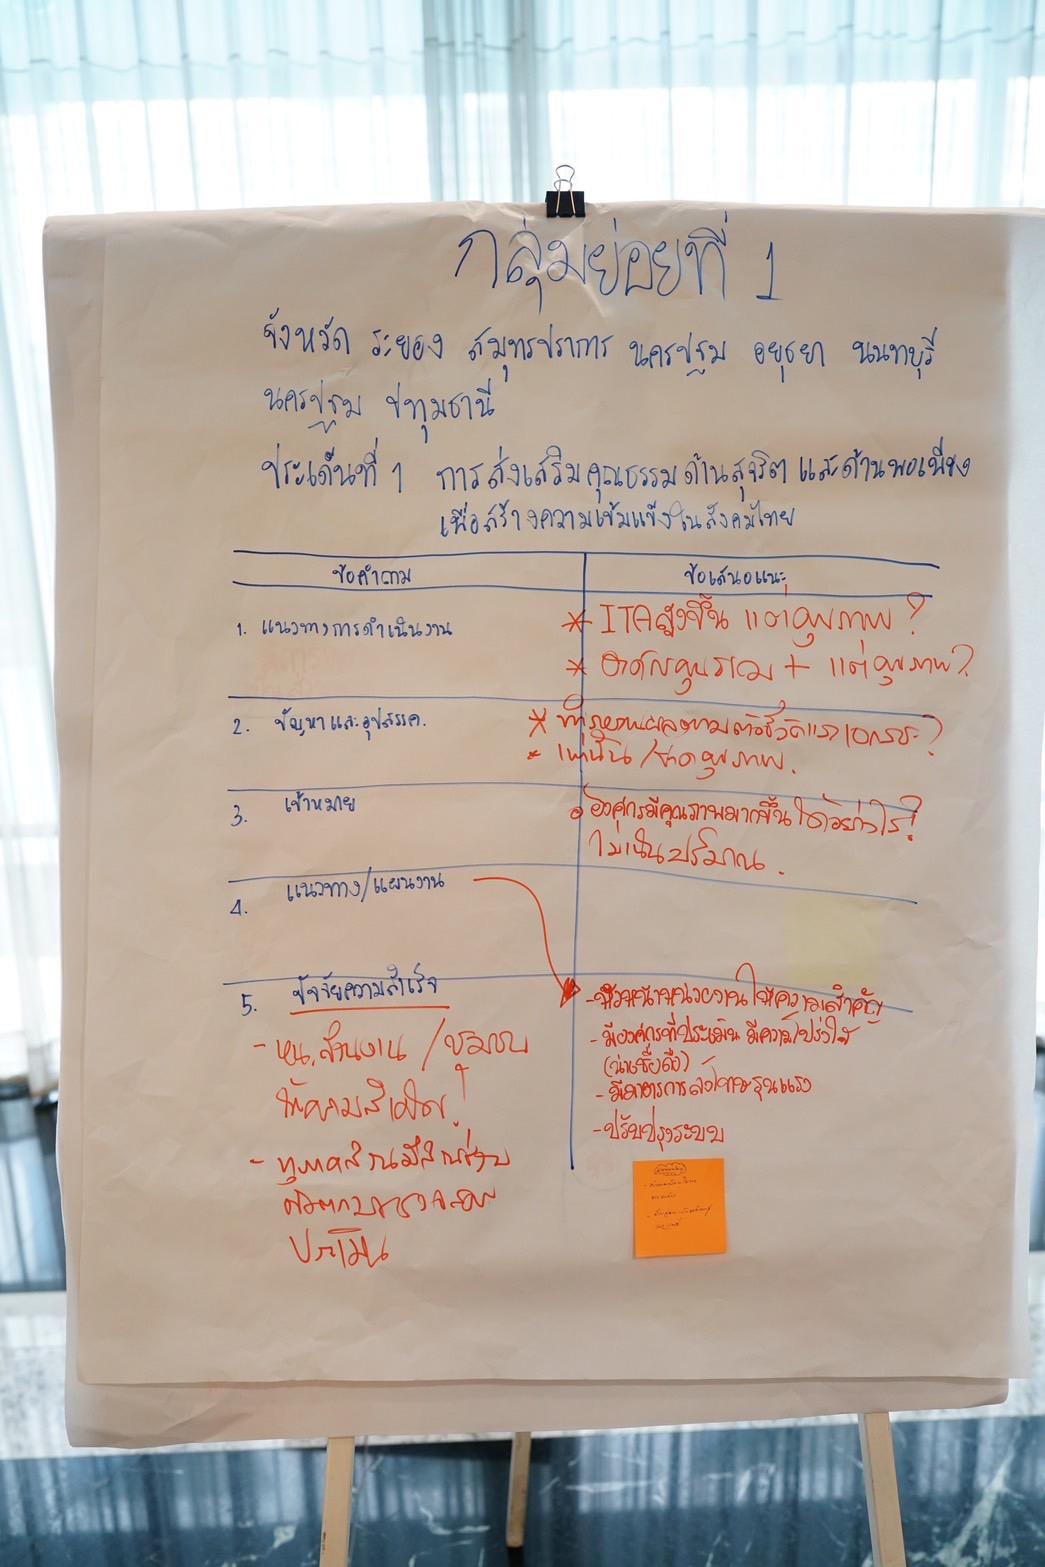 กลุ่มย่อยที่ 1
จังหวัด ระยอง สมุทรปราการ นครปฐม อยุธยา นนทบุรี
นครปฐม ปทุมธานี
ประเด็นที่ 1 การส่งเสริมคุณธรรมด้านสุจริต และด้านพอเพียง
เพื่อสร้างความเข้มแข็งในสังคมไทย
ข้อคำถาม
ข้อเสนอแนะ
1. แนวทางการดำเนินงาน
* ITA สูงขึ้น แต่คุณภาพ?
* องค์กรคุณธรรม + แต่คุณภาพ?
2. ปัญหาและอุปสรรค.
* ทำรายงานผลตามตัวชี้วัด
* เท่านั้น / ขาดคุณภาพ.
3. เป้าหมาย
องค์กรมีคุณภาพมากขึ้นได้อย่างไร?
ไม่เน้นปริมาณ.
4. แนวทาง/แผนงาน
5. ปัจจัยความสำเร็จ
- หน.ส่วนงาน / ชุมชน
ให้ความสำคัญ!
- ทุกภาคส่วนมีส่วนร่วม
ตรวจสอบ
ประเมิน
- หัวหน้าหน่วยงานให้ความสำคัญ
- มีองค์กรที่ประเมิน มีความโปร่งใส
(น่าเชื่อถือ)
- มีมาตรการลงโทษรุนแรง
- ปรับปรุงระบบ